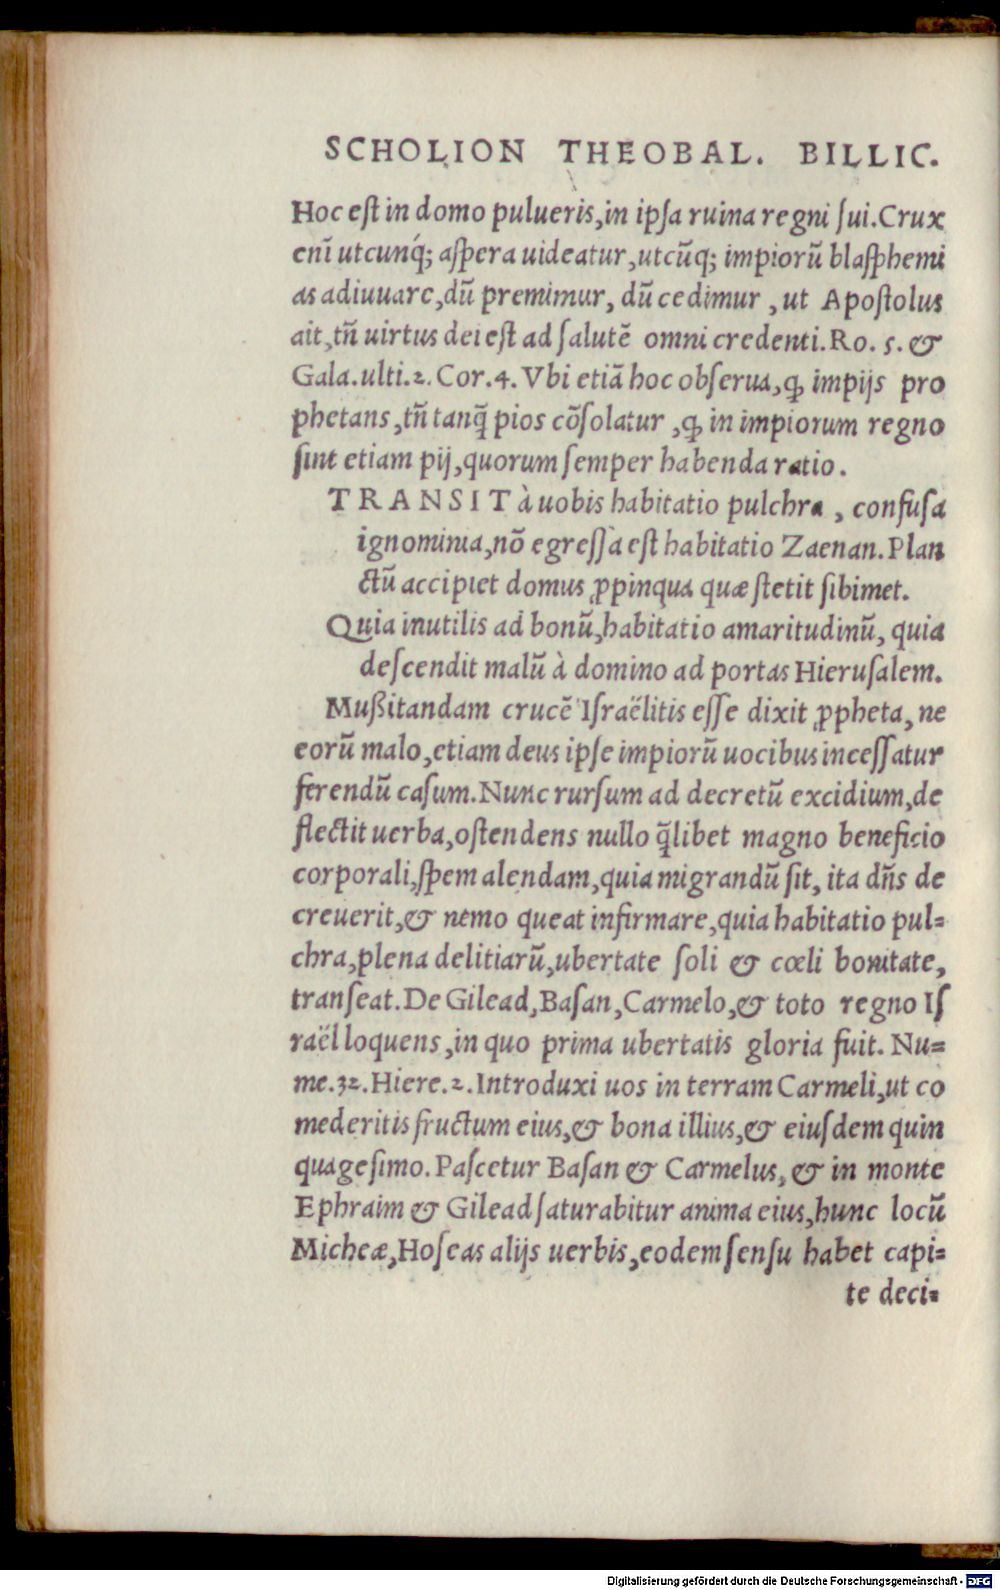 SCHOLION THEOBAL. BILLIC.
Hoc eſt in domo pulueris,in ipſa ruina regni ſui.Crux
enī utcunq́; aſpera uideatur,utcūq; impiorū blaſphemi
as adiuuare,dū premimur, dū cedimur , ut Apoſtolus
ait,tñ uirtus dei eſt ad ſalutē omni credenti.Ro. 5. &
Gala.ulti.2.Cor.4.Vbi etiā hoc obſerua,ꝙ impijs pro
phetans,tñ tanq̃ pios cõſolatur ,ꝙ in impiorum regno
ſint etiam pij,quorum ſemper habenda ratio.
TRANSIT à uobis habitatio pulchra , confuſa
ignominia,nõ egreſſa eſt habitatio Zaenan.Plan
ctū accipiet domus ꝓpinqua quæ ſtetit ſibimet.
Quia inutilis ad bonū,habitatio amaritudinū, quia
deſcendit malū à domino ad portas Hieruſalem.
Mußitandam crucē Iſraëlitis eſſe dixit ꝓpheta, ne
eorū malo,etiam deus ipſe impiorū uocibus inceſſatur
ferendū caſum.Nunc rurſum ad decretū excidium,de
flectit uerba,oſtendens nullo q̃libet magno beneficio
corporali,ſpem alendam,quia migrandū ſit, ita dñs de
creuerit,& nemo queat infirmare,quia habitatio pul=
chra,plena delitiarū,ubertate ſoli & cœli bonitate,
tranſeat.De Gilead,Baſan,Carmelo,& toto regno Iſ
raël loquens,in quo prima ubertatis gloria fuit. Nu=
me.32.Hiere.2.Introduxi uos in terram Carmeli,ut co
mederitis fructum eius,& bona illius,& eiuſdem quin
quageſimo.Paſcetur Baſan & Carmelus, & in monte
Ephraim & Gilead ſaturabitur anima eius,hunc locū
Micheæ,Hoſeas alijs uerbis,eodem ſenſu habet capi=
te deci=
Digitalisierung gefördert durch die Deutsche Forschungsgemeinschaft - DFG